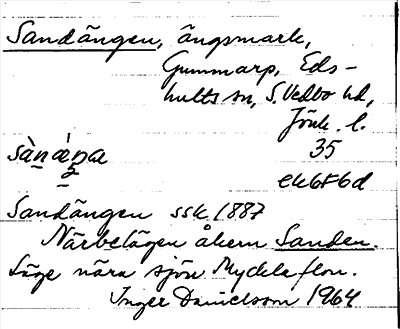 Sandängen, ängsmark,
Gummarp, Eds-
hults sn, S. Vedbo hd,
Jönk. l.
35
ek6f6d
Sandängen ssk 1887
Närbelägen åkern Sanden.
Läge nära sjön Mycklaflon.
Inger Danielsson 1964